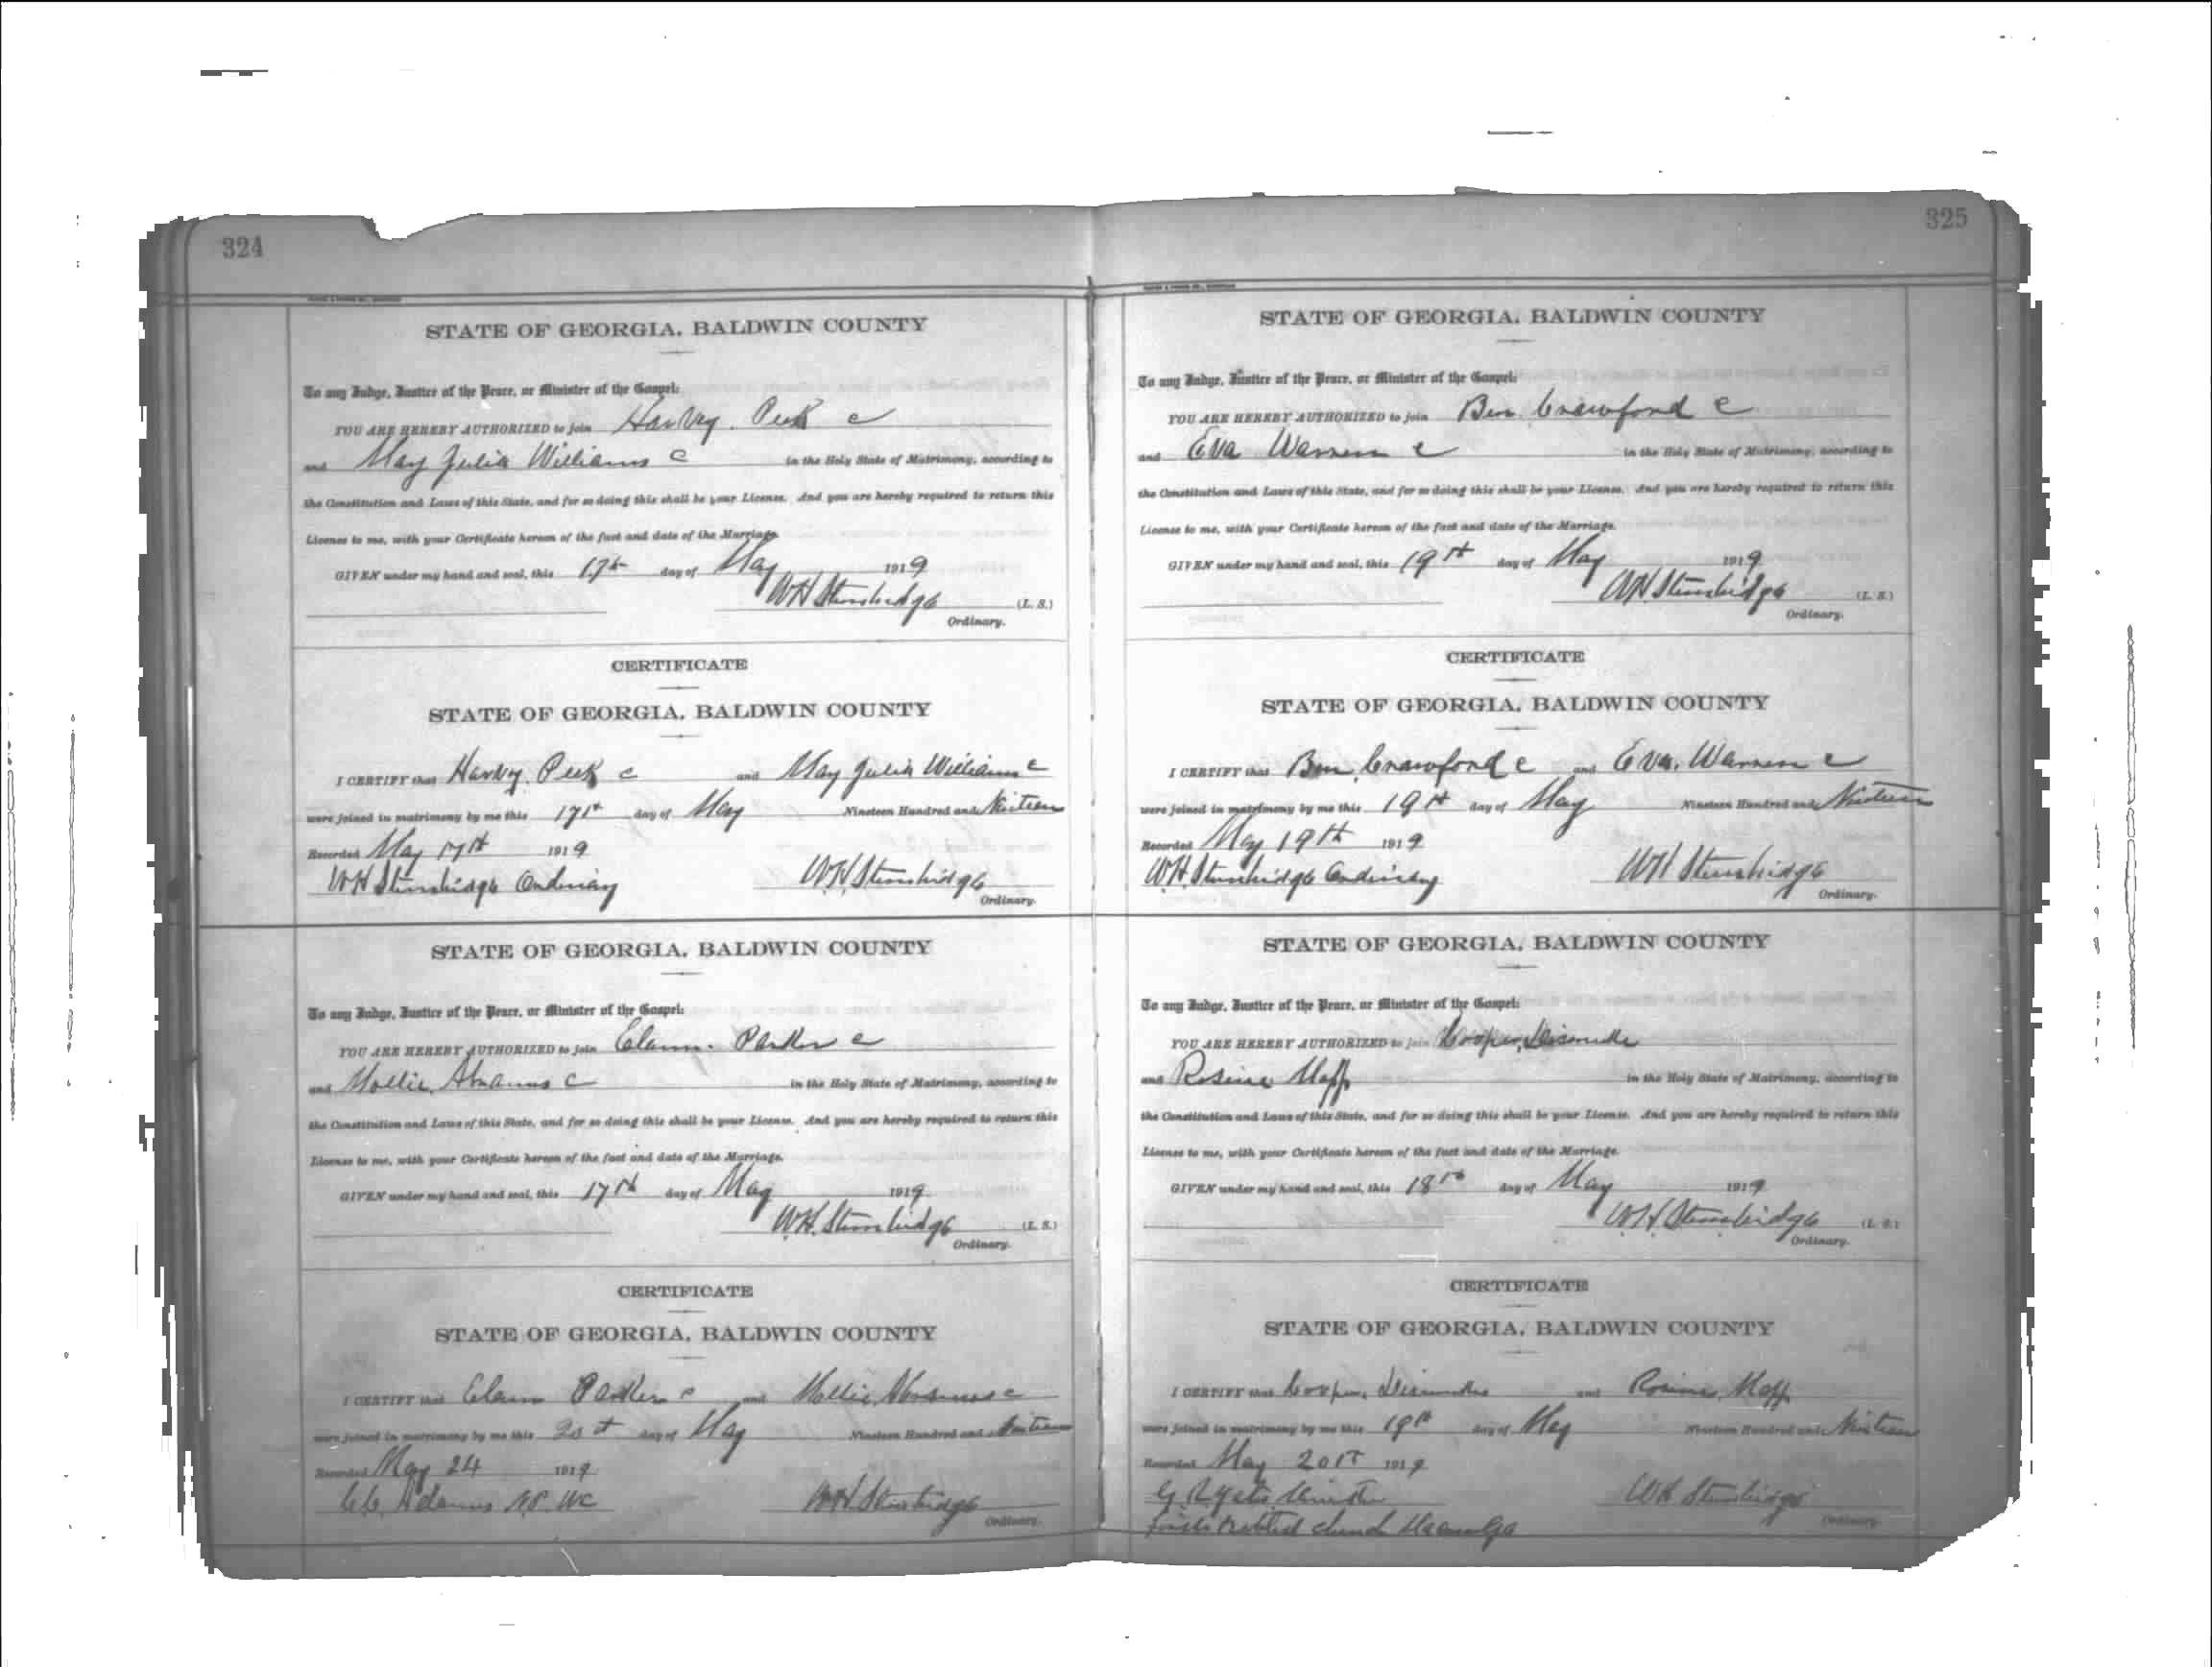 324
STATE OF GEORGIA, BALDWIN COUNTY
To any Judge, Justice of the Peace, or Minister of the Gospel:
YOU ARE HEREBY AUTHORIZED to join Harvey Peek c
and May Julia Williams c in the Holy State of Matrimony, according to
the Constitution and Laws of this State, and for so doing this shall be your License. And you are hereby required to return this
License to me, with your Certificate hereon of the fact and date of the Marriage.
GIVEN under my hand and seal, this 17th day of May 1919
WH Stembridge (L. S.)
Ordinary.
CERTIFICATE
STATE OF GEORGIA, BALDWIN COUNTY
I CERTIFY that Harvey Peek c and May Julia Williams c
were joined in matrimony by me this 17th day of May Nineteen Hundred and Nineteen
Recorded May 17th 1919
WH Stembridge Ordinary WH Stembridge
Ordinary.
STATE OF GEORGIA, BALDWIN COUNTY
To any Judge, Justice of the Peace, or Minister of the Gospel:
YOU ARE HEREBY AUTHORIZED to join Elam Parker c
and Mollie Abrams c in the Holy State of Matrimony, according to
the Constitution and Laws of this State, and for so doing this shall be your License. And you are hereby required to return this
License to me, with your Certificate hereon of the fact and date of the Marriage.
GIVEN under my hand and seal, this 17th day of May 1919
W.H. Stembridge (L. S.)
Ordinary.
CERTIFICATE
STATE OF GEORGIA, BALDWIN COUNTY
I CERTIFY that Elam Parker c and Mollie Abrams c
were joined in matrimony by me this 20th day of May Nineteen Hundred and Nineteen
Recorded May 24 1919
Adams N.P. WH Stembridge
Ordinary.
325
STATE OF GEORGIA, BALDWIN COUNTY
To any Judge, Justice of the Peace, or Minister of the Gospel:
YOU ARE HEREBY AUTHORIZED to join Ben Crawford c
and Eva Warren c in the Holy State of Matrimony, according to
the Constitution and Laws of this State, and for so doing this shall be your License. And you are hereby required to return this
License to me, with your Certificate hereon of the fact and date of the Marriage.
GIVEN under my hand and seal, this 19th day of May 1919
WH Stembridge (L. S.)
Ordinary.
CERTIFICATE
STATE OF GEORGIA, BALDWIN COUNTY
I CERTIFY that Ben Crawford c and Eva Warren c
were joined in matrimony by me this 19th day of May Nineteen Hundred and Nineteen
Recorded May 19th 1919
W.H. Stembridge Ordinary WH Stembridge
Ordinary.
STATE OF GEORGIA, BALDWIN COUNTY
To any Judge, Justice of the Peace, or Minister of the Gospel:
YOU ARE HEREBY AUTHORIZED to join Cooper Dismuke
and Rosine Mapp in the Holy State of Matrimony, according to
the Constitution and Laws of this State, and for so doing this shall be your License. And you are hereby required to return this
License to me, with your Certificate hereon of the fact and date of the Marriage.
GIVEN under my hand and seal, this 18th day of May 1919
W.H. Stembridge (L. S.)
Ordinary.
CERTIFICATE
STATE OF GEORGIA, BALDWIN COUNTY
I CERTIFY that Cooper Dismuke and Rosine Mapp
were joined in matrimony by me this 19th day of May Nineteen Hundred and Nineteen
Recorded May 20th 1919
Minister WH Stembridge
Ordinary.
church Macon Ga